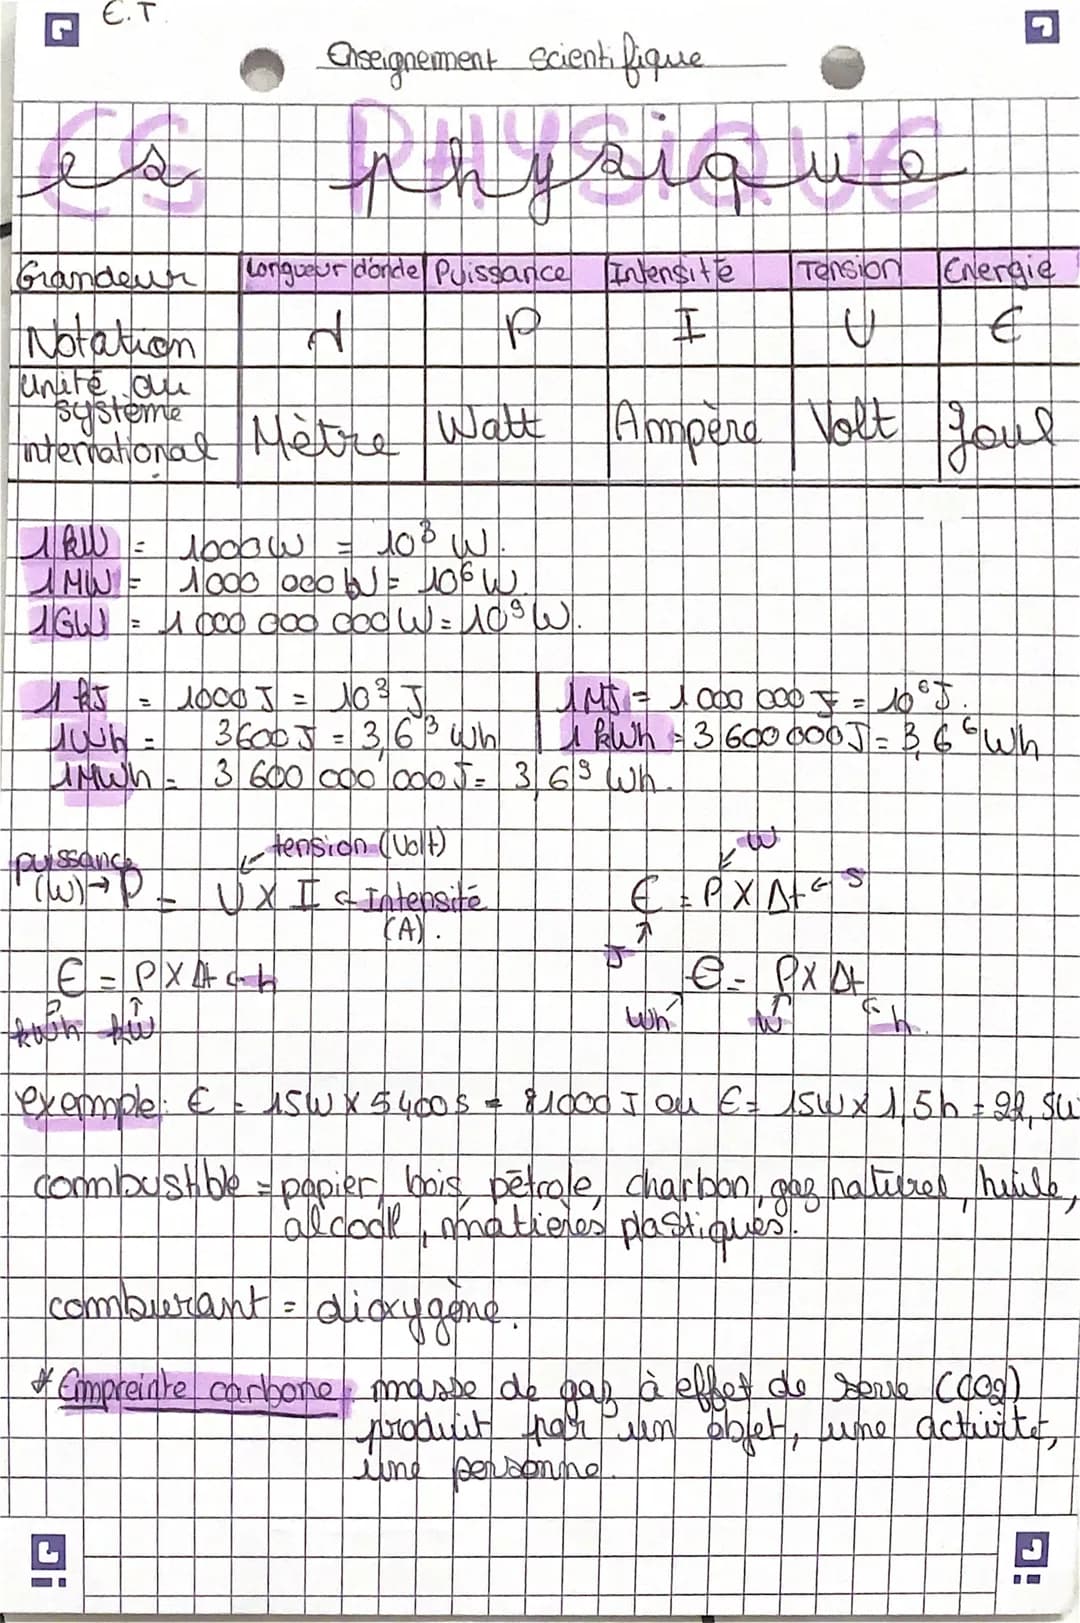 E.T.
Enseignement scientifique
es physique
ES PHYSIQUE
Grandeur Longueur d'onde Puissance Intensité Tension Energie
Notation λ P I U E
unité du système international Mètre Watt Ampère Volt Joul
1 kW = 1000 W = 10³ W.
1 MW = 1000 000 W = 10⁶ W.
1GW = 1 000 000 000 W = 10⁹ W.
1 kJ = 1000 J = 10³ J. 1MJ = 1 000 000 J = 10⁶ J.
1Wh = 3600 J = 3,6³ Wh 1 kWh = 3 600 000 J = 3,6⁶ Wh
1MWh = 3 600 000 000 J = 3,6⁹ Wh.
puissance (W) → P = U x I ← Intensité (A).
tension (Volt)
E = P x Δt ← s
W
J
E = P x Δt ← h
kWh kW
E = P x Δt
Wh W h.
exemple: E = 15W x 5400s = 81000 J ou E = 15W x 1,5h = 22,5W
combustible = papier, bois, pétrole, charbon, gaz naturel, huile,
alcool, matières plastiques.
comburant = dioxygène.
* Empreinte carbone : masse de gaz à effet de serre (CO2)
produit par un objet, une activité,
une personne.